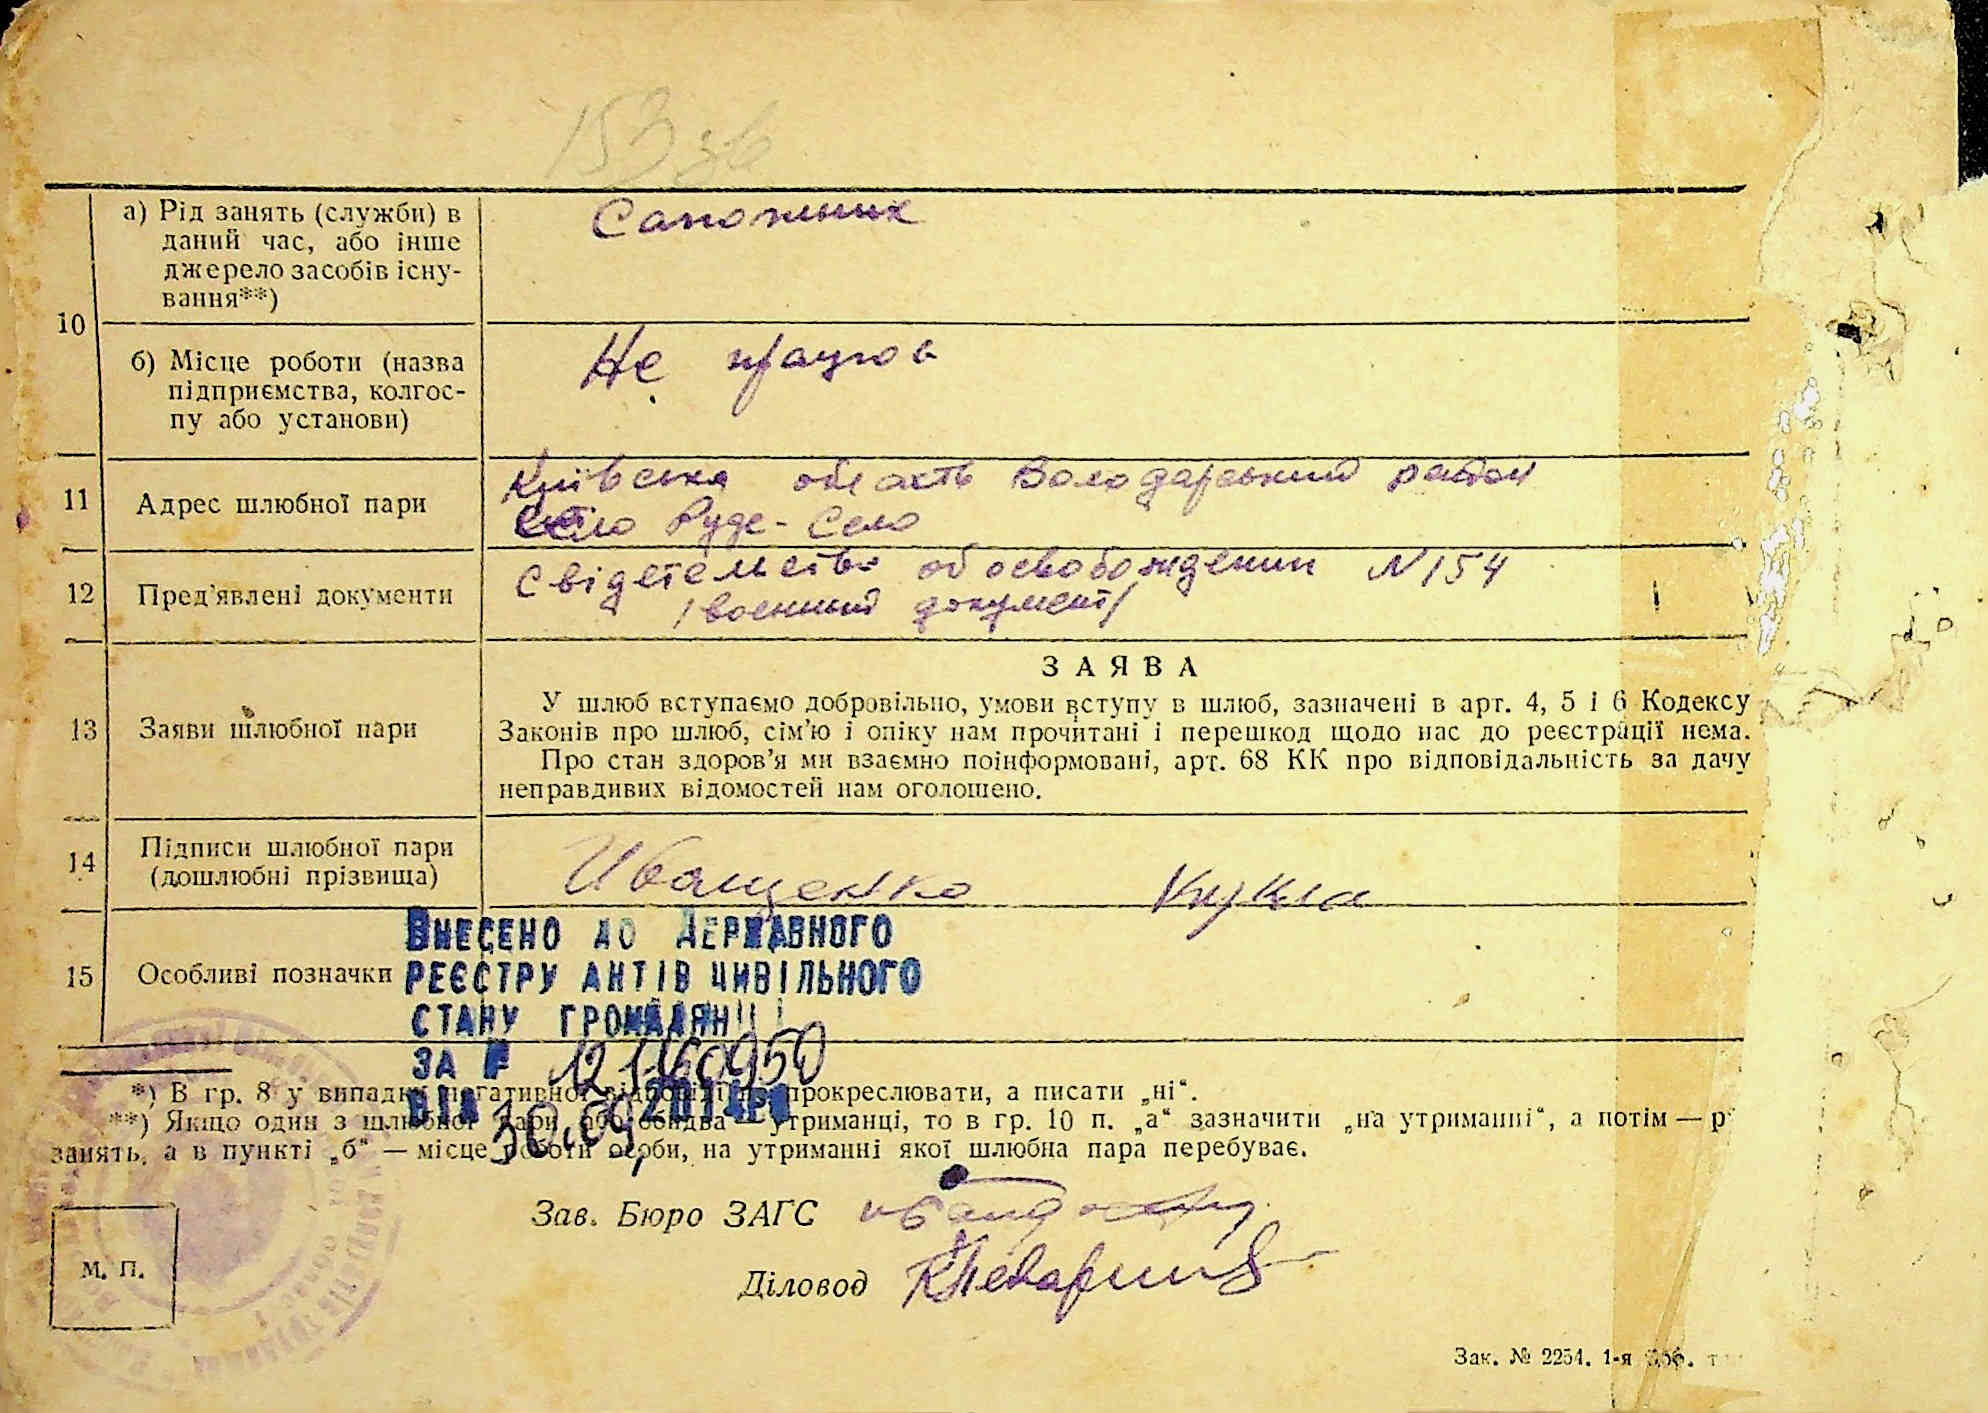 153 зв
а) Рід занять (служби) в
даний час, або інше
джерело засобів існу-
вання**)
Сапожник
10
б) Місце роботи (назва
підприємства, колгос-
пу або установи)
Не працює
11
Адрес шлюбної пари
Київська область Володарський район
село Руде-Село
12
Пред'явлені документи
Свідетельство об освобождении N 154
/военный документ/
13
Заяви шлюбної пари
ЗАЯВА
У шлюб вступаємо добровільно, умови вступу в шлюб, зазначені в арт. 4, 5 і 6 Кодексу
Законів про шлюб, сім'ю і опіку нам прочитані і перешкод щодо нас до реєстрації нема.
Про стан здоров'я ми взаємно поінформовані, арт. 68 КК про відповідальність за дачу
неправдивих відомостей нам оголошено.
14
Підписи шлюбної пари
(дошлюбні прізвища)
Иващенко Кукла
15
Особливі позначки
ВНЕСЕНО ДО ДЕРЖАВНОГО
РЕЄСТРУ АКТІВ ЦИВІЛЬНОГО
СТАНУ ГРОМАДЯН
ЗА №
ВІД 30.09. 2014р
*) В гр. 8 у випадку негативної відповіді не прокреслювати, а писати „ні“.
**) Якщо один з шлюбної пари або обидва — утриманці, то в гр. 10 п. „а“ зазначити „на утриманні“, а потім — р
занять, а в пункті „б“ — місце роботи особи, на утриманні якої шлюбна пара перебуває.
Зав. Бюро ЗАГС
Діловод
М. П.
Зак. № 2254. 1-я